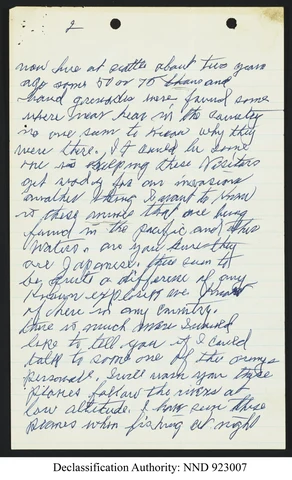 2
now here at seattle about two years
ago some 50 or 75 thousand
hand grenades were found some
where near hear in the country
no one seem to know why they
were there. it could be some
one is helping these Visitors
get ready for our invasion
another thing I want to know
is these mines that are being
found in the pacific and this
waters. are you sure they
are Japanese. there seem to
be quite a difference of any
Known explosives ever
of there in any country.
there is much more I would
like to tell you if I could
talk to some one of the army
personals. I will warn you these
planes follow the rivers at
low altitude. I have seen these
planes when fishing at night
Declassification Authority: NND 923007